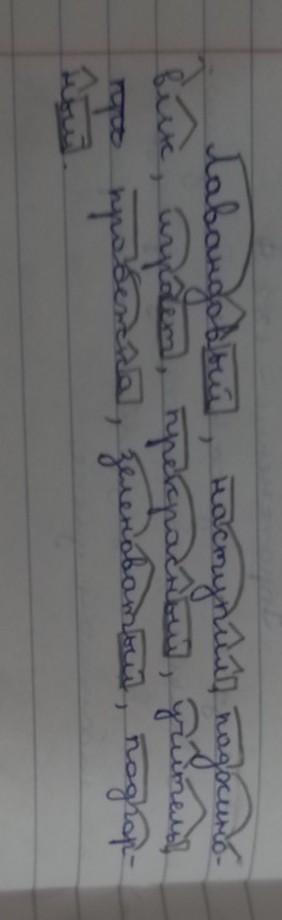 Лавандовый, наступил, подосино-
вик, играет, прекрасный, учитель,
пробежка, зеленоватый, подгор-
ный.